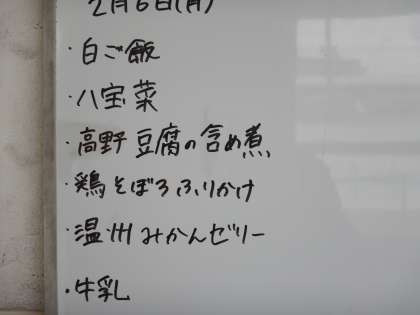 2月6日(月)
・白ご飯
・八宝菜
・高野豆腐の含め煮
・鶏そぼろふりかけ
・温州みかんゼリー
・牛乳